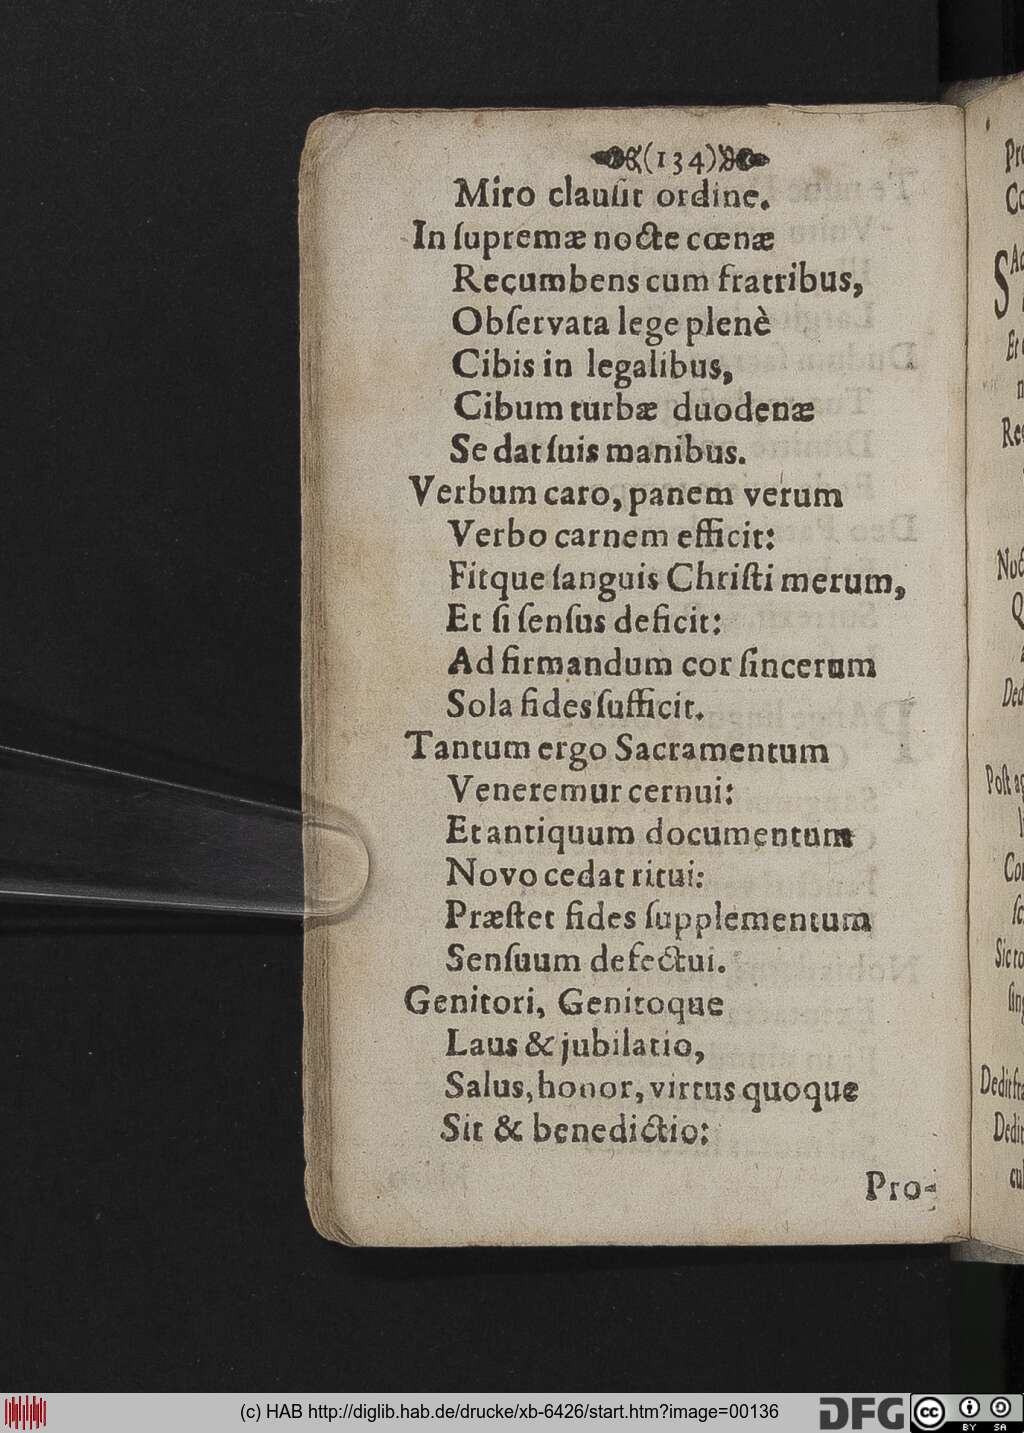 (134)
Miro clauſit ordine.
In ſupremæ nocte cœnæ
Recumbens cum fratribus,
Obſervata lege plenè
Cibis in legalibus,
Cibum turbæ duodenæ
Se dat ſuis manibus.
Verbum caro, panem verum
Verbo carnem efficit:
Fitque ſanguis Chriſti merum,
Et ſi ſenſus deficit:
Ad firmandum cor ſincerum
Sola fides ſufficit.
Tantum ergo Sacramentum
Veneremur cernui:
Et antiquum documentum
Novo cedat ritui:
Præſtet fides ſupplementum
Senſuum defectui.
Genitori, Genitoque
Laus & jubilatio,
Salus, honor, virtus quoque
Sit & benedictio:
Pro-
(c) HAB http://diglib.hab.de/drucke/xb-6426/start.htm?image=00136
DFG
cc BY SA